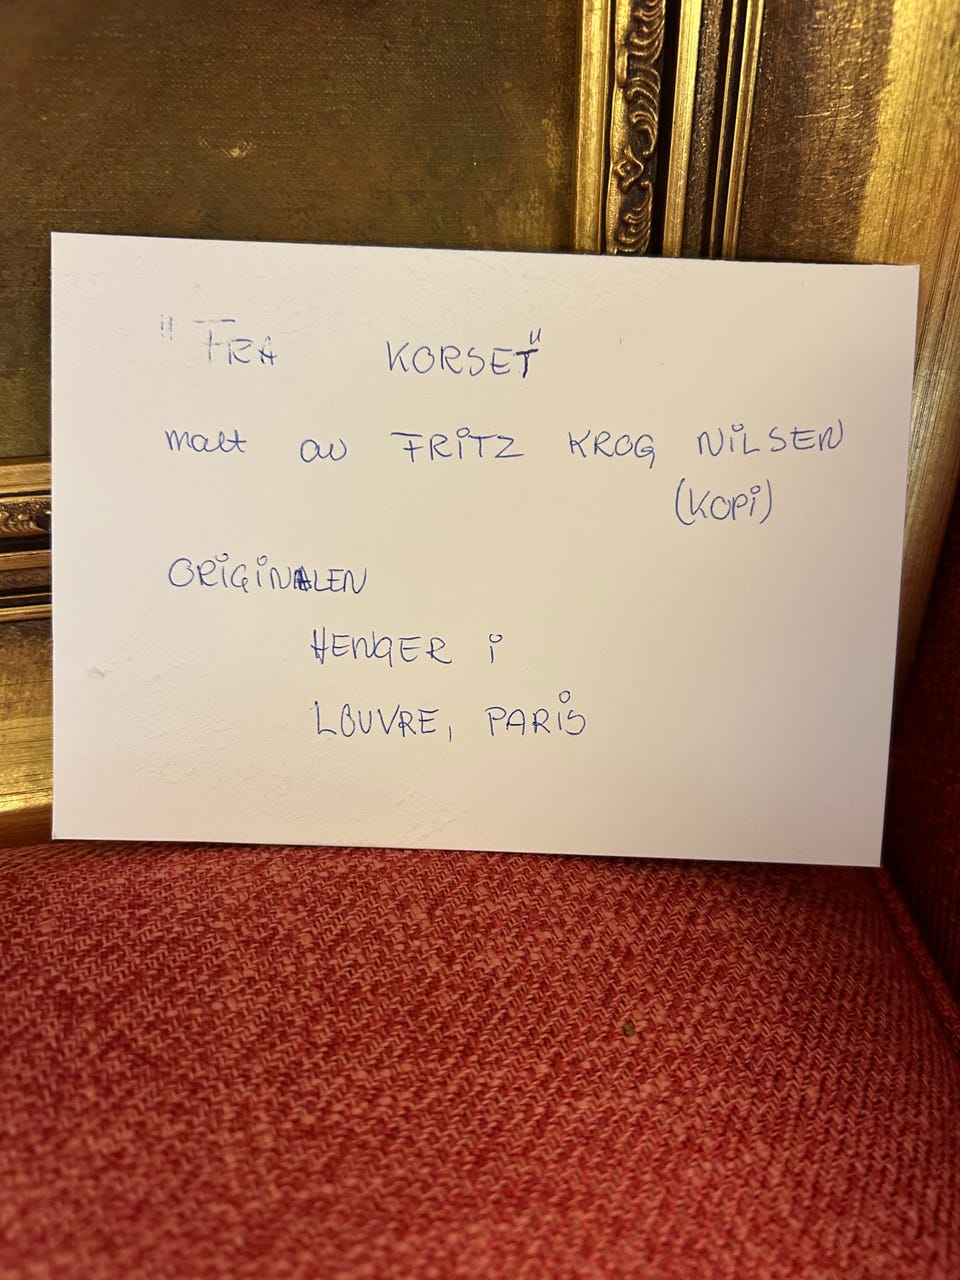 "FRA KORSET"
malt av FRITZ KROG NILSEN
(KOPI)
ORIGINALEN
HENGER i
LOUVRE, PARIS